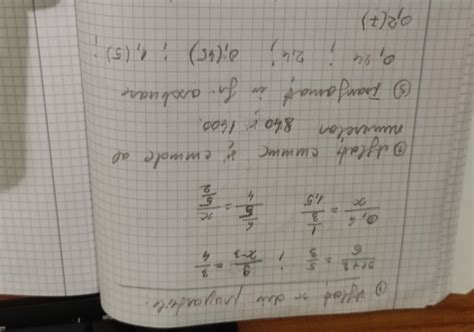 ① Aflați x din proporțiile:
= 5/3 ; 9/x-3 = 3/4
0,6/x = 1/3/1,5 6/5/4 = x/5/2
② Aflați cmmmc și cmmdc al
numerelor 840 și 1600.
③ Transformați în fr. ordinare
0,24 ; 2,4 ; 0,(45) ; 1,(5) ;
0,2(7)